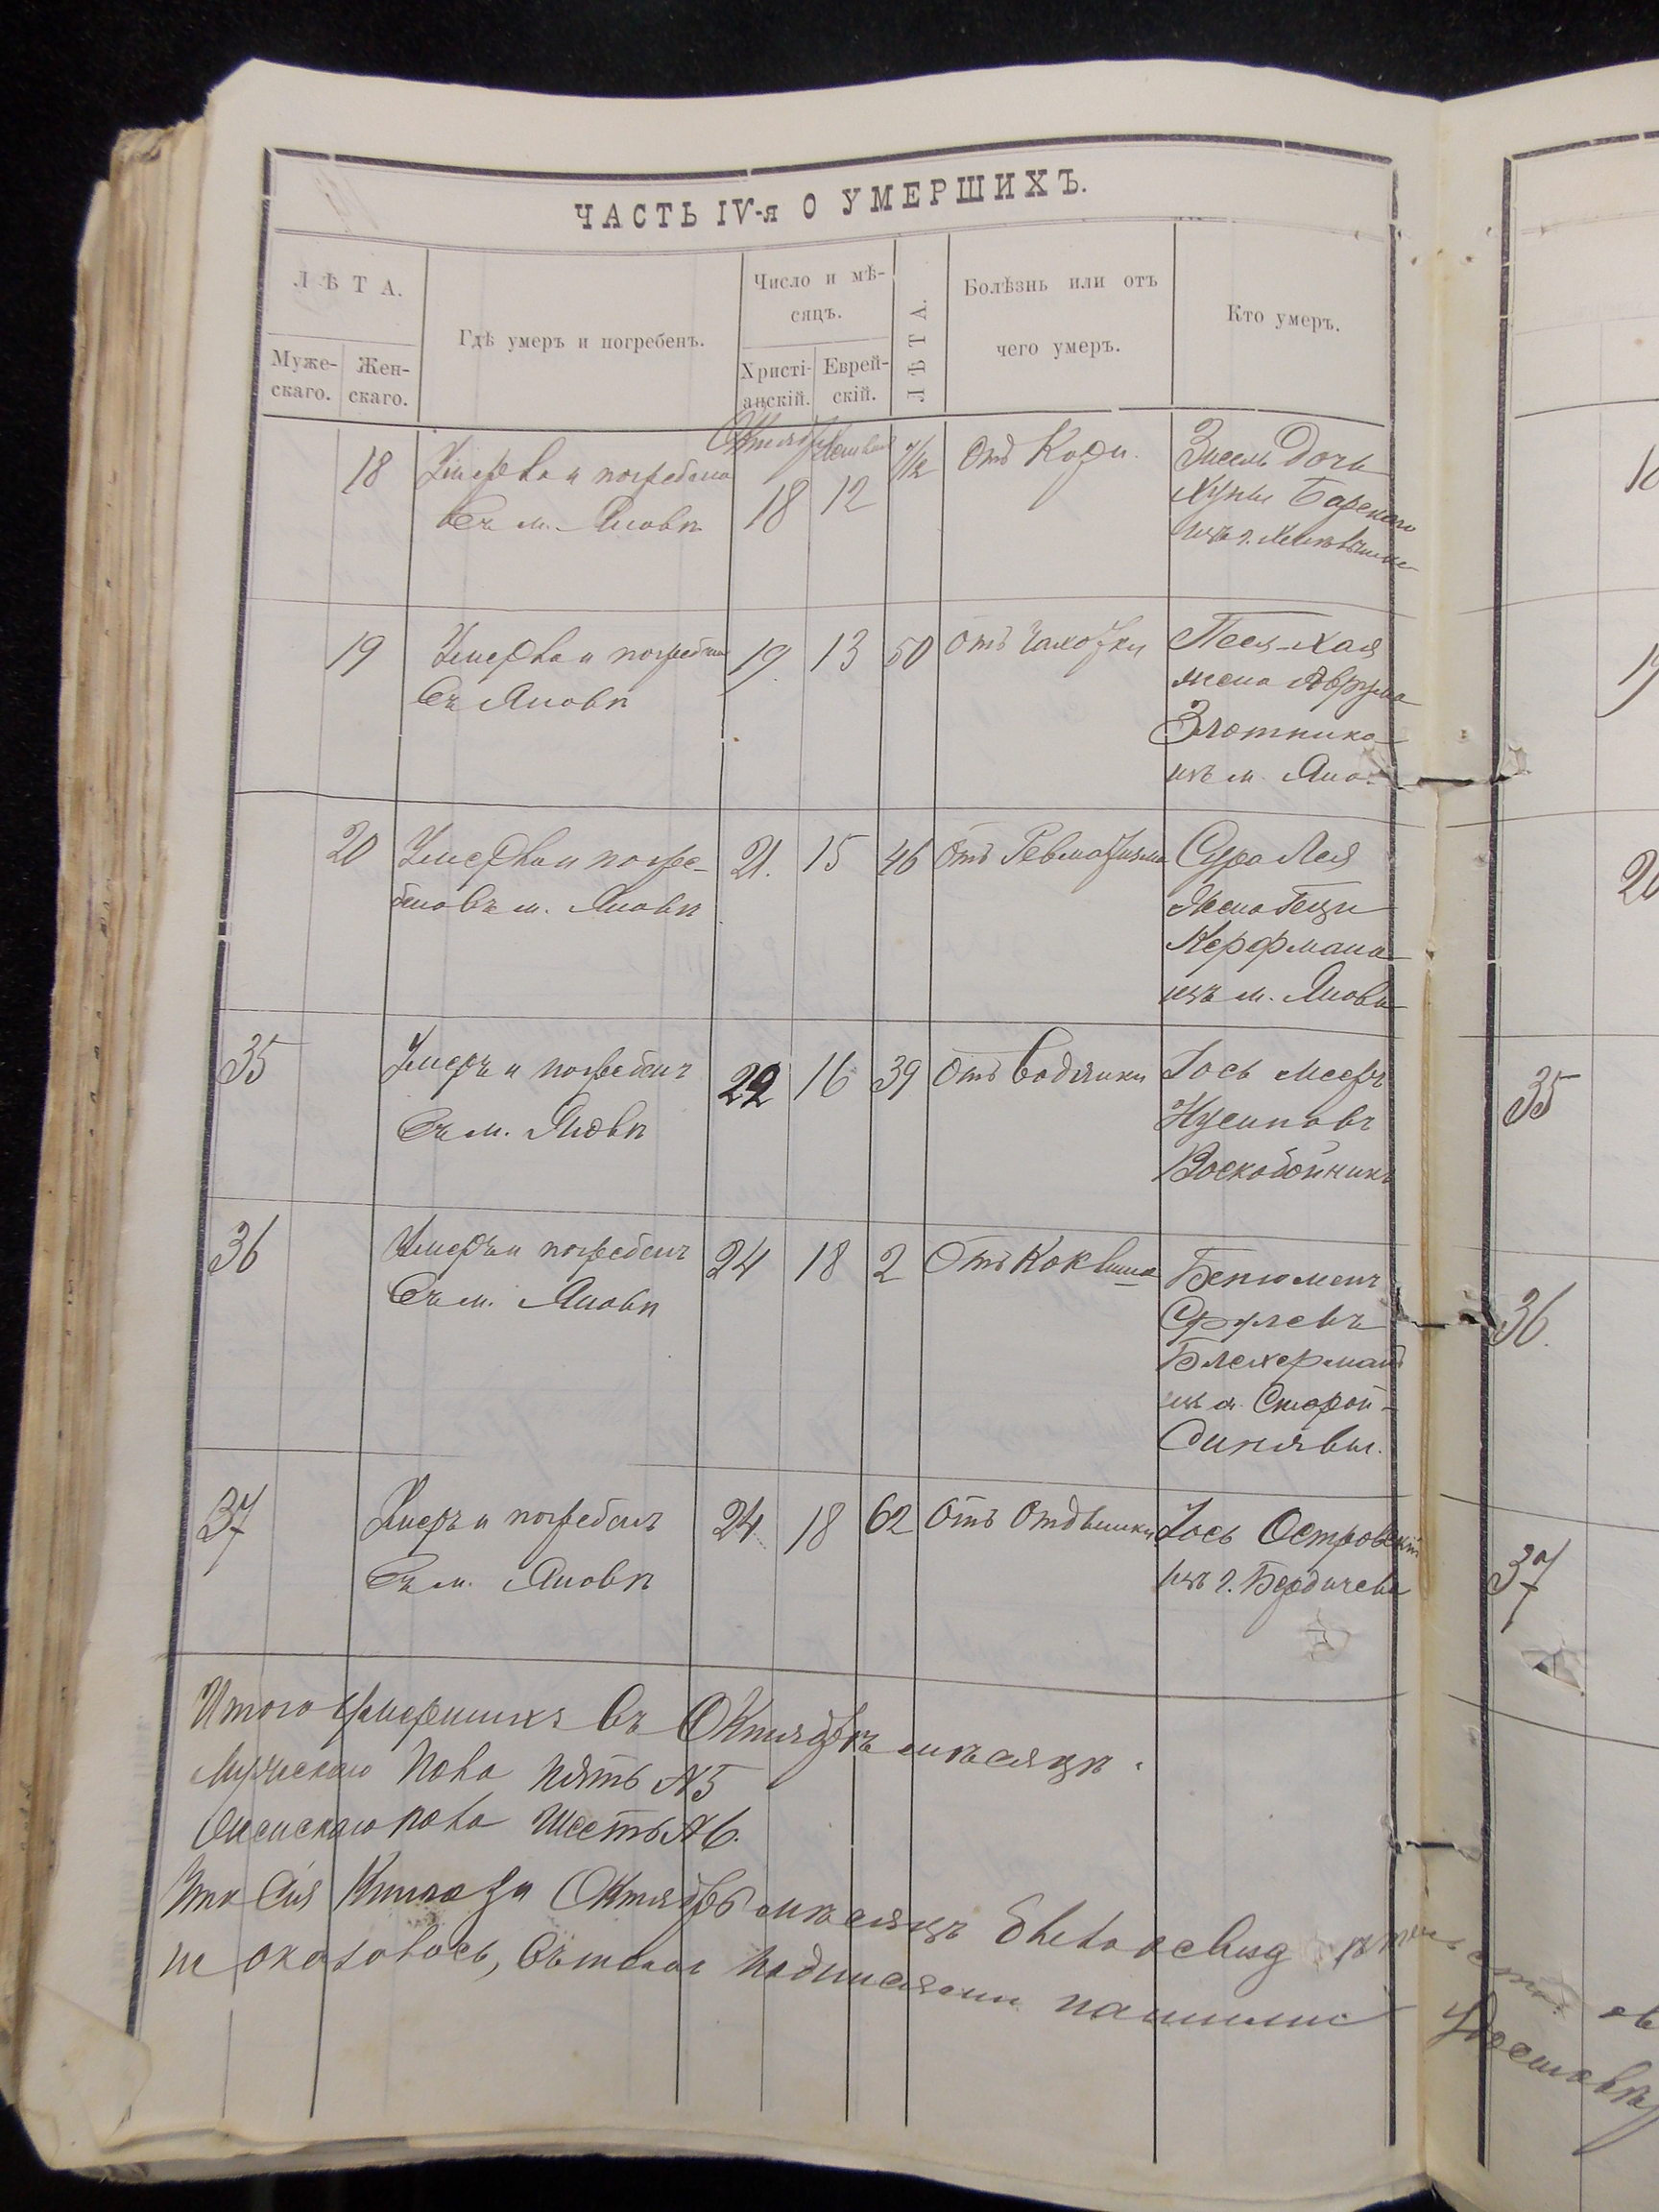 ЧАСТЬ IV-я О УМЕРШИХЪ.
ЛѢТА.
Муже-
скаго.
Жен-
скаго.
Гдѣ умеръ и погребенъ.
Число и мѣ-
сяцъ.
Христі-
анскій.
Еврей-
скій.
ЛѢТА.
Болѣзнь или отъ
чего умеръ.
Кто умеръ.
Октября
18
Умерла и погребена
въ м. Яновѣ
18
12
1/2
отъ Кори.
дочь
Барскаго
изъ г.
18
19
Умерла и погребена
въ Яновѣ
19
13
50
отъ чахотки
Песя-Хая
жена Аврума
Злотника
изъ м. Яно
19
20
Умерла и погре-
бена въ м. Яновѣ
21.
15
46
отъ Ревматизма
Сура Лея
жена
Керфмана
изъ м. Янова
20
35
Умеръ и погребенъ
въ м. Яновѣ
22
16
39
отъ Водянки
Іось Мееръ
Нусиновъ
Воскобойникъ
35
36
Умеръ и погребенъ
въ м. Яновѣ
24
18
2
отъ Коклиша
Бенюменъ
Сруловъ
Блехерманъ
изъ м. Старой-
Синявы.
36.
37
Умеръ и погребенъ
въ м. Яновѣ
24
18
62
отъ Отдышки
Іось Островскій
изъ г. Бердичева
37
Итого умершихъ въ Октябрѣ мѣсяцѣ.
Мужескаго пола пять №5
Женскаго пола шесть №6.
Что сія Книга за Октябрь мѣсяцъ
не оказалось, въ томъ подписями нашими